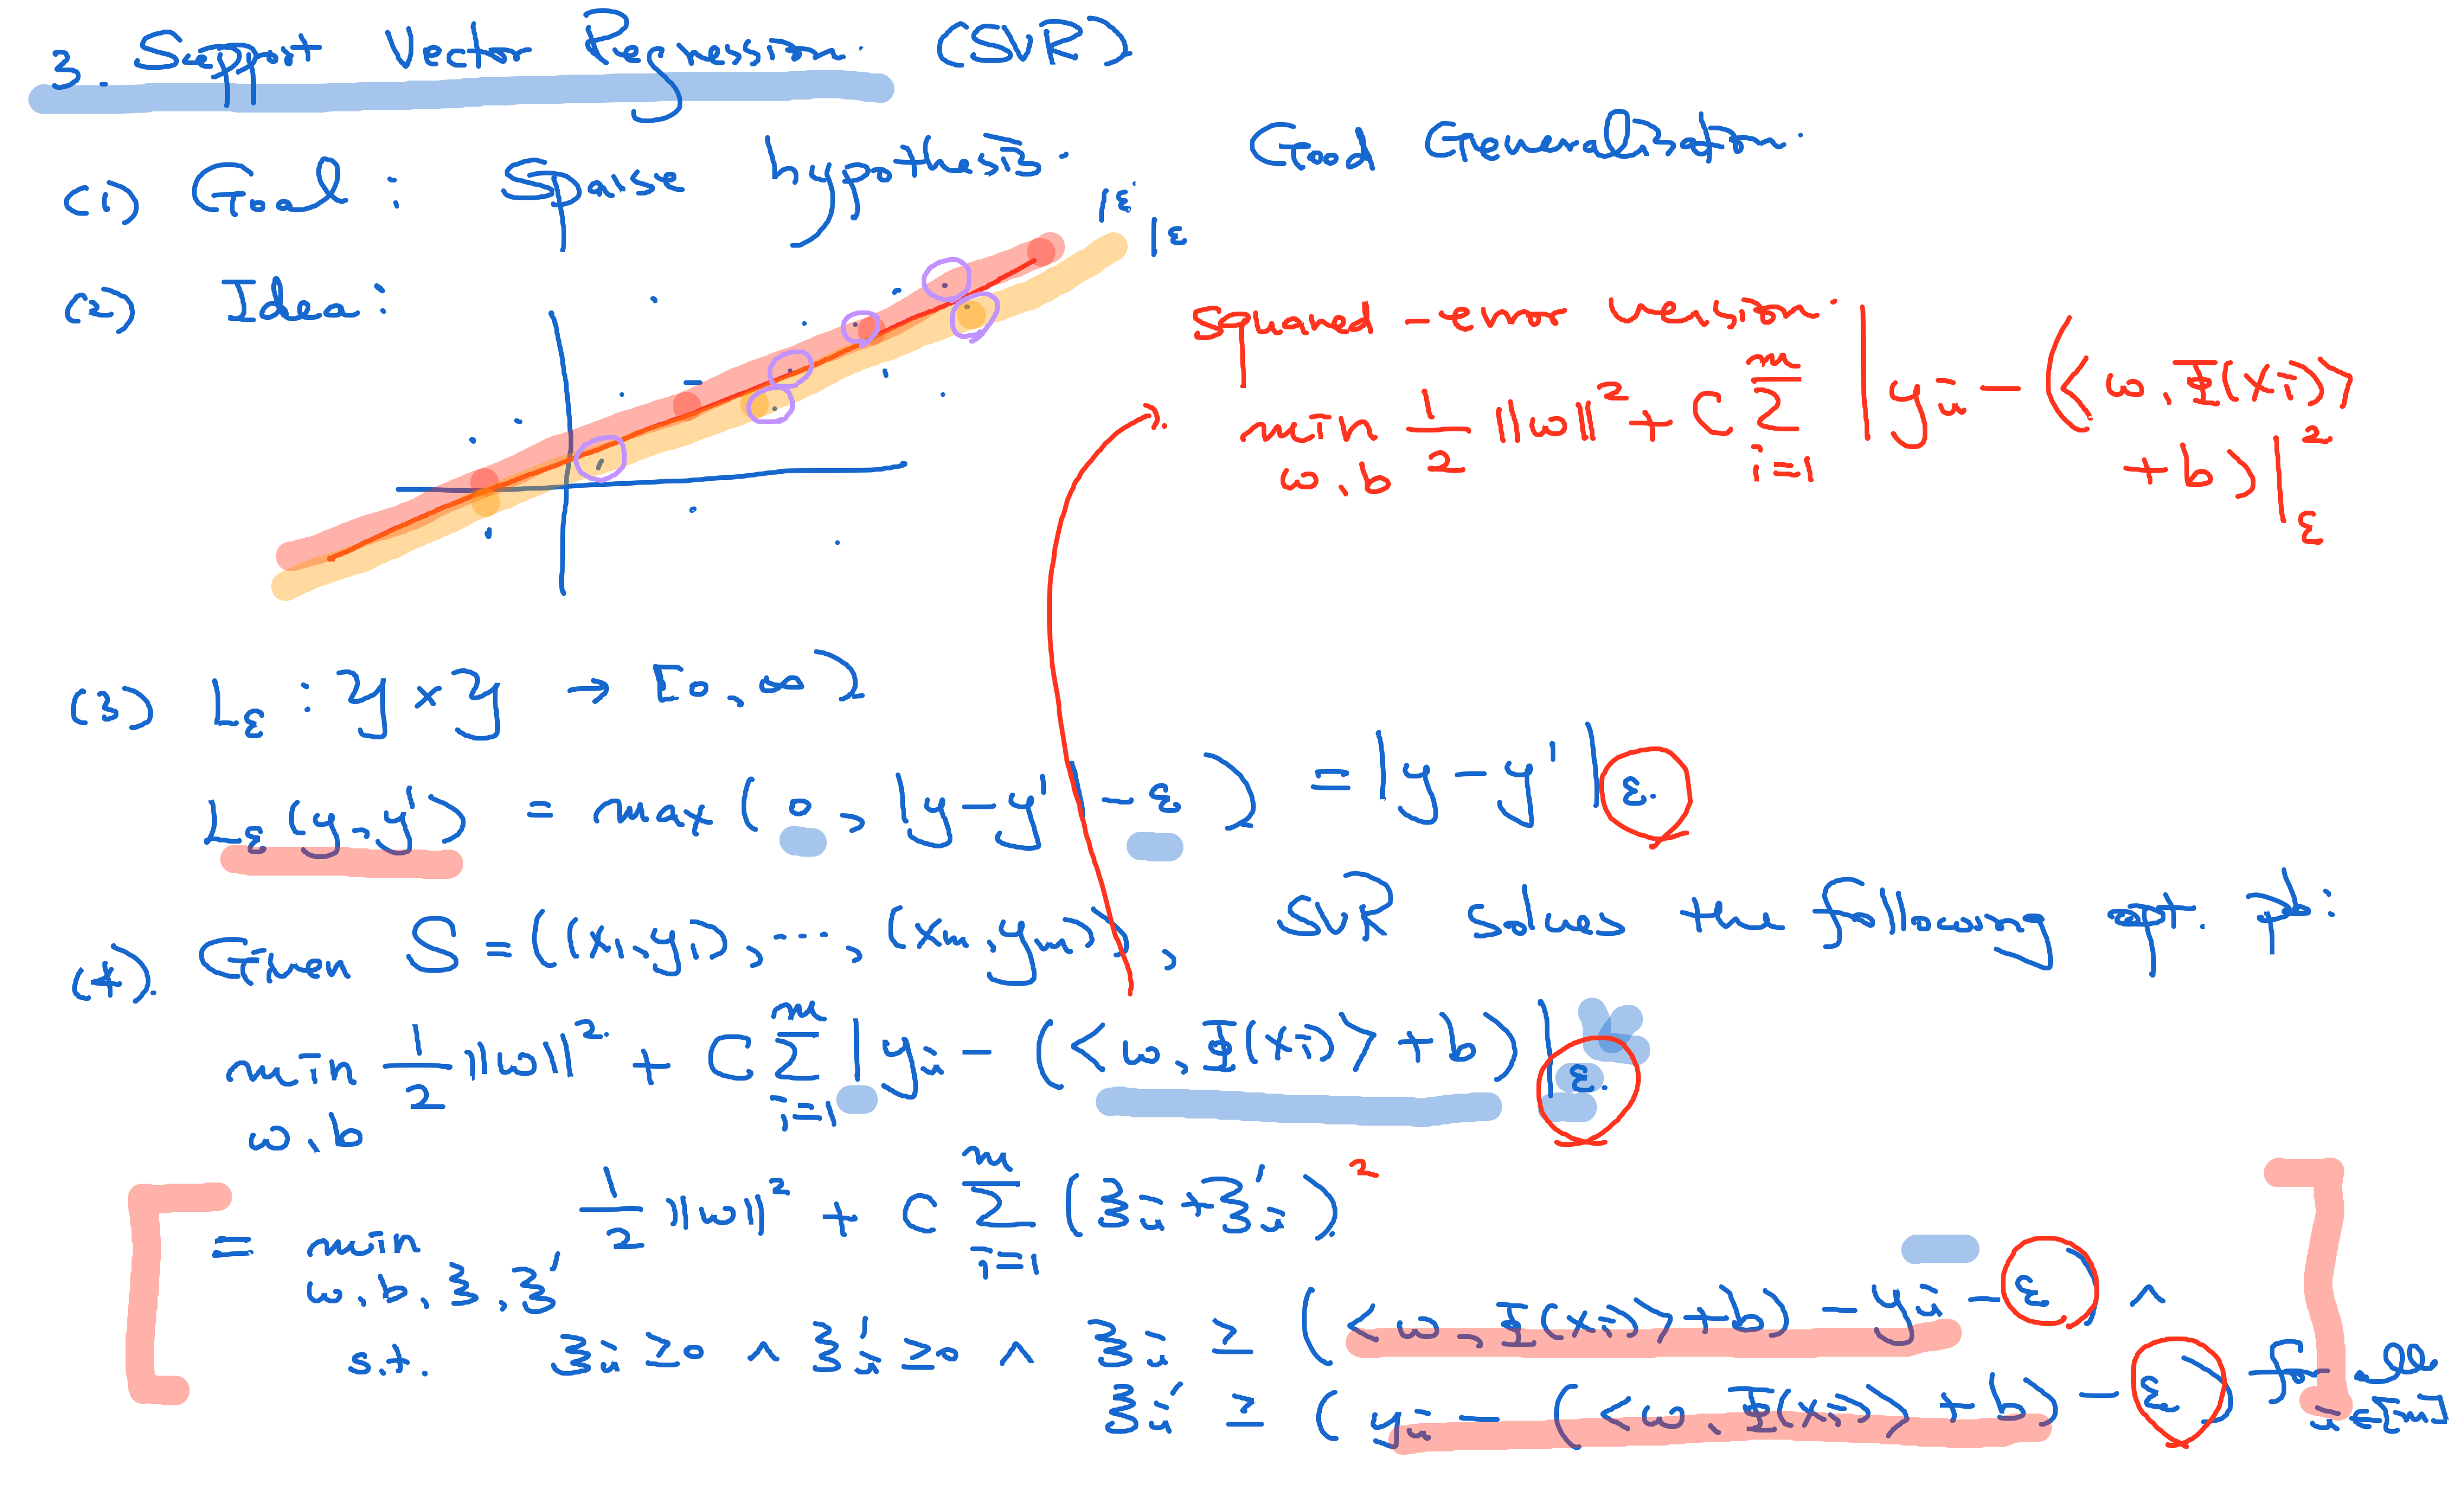 3. Support Vector Regression. (SVR)
(1) Goal : Sparse hypothesis. Good Generalization.
(2) Idea :
|ε.
|ε
Squared-error version.
min w,b 1/2 ||w||² + C Σ_{i=1}^{m} |y_i - (<w, Φ(x_i)> + b)|²_ε
(3) L_ε : Y × Y → [0, ∞)
L_ε(y, y') = max(0, |y - y'| - ε) = |y - y'|_ε.
(4). Given S = ((x_1, y_1), ..., (x_m, y_m)), SVR solves the following opt. pb:
min w,b 1/2 ||w||² + C Σ_{i=1}^{m} |y_i - (<w, Φ(x_i)> + b)|_ε.
= min w,b,ξ,ξ' 1/2 ||w||² + C Σ_{i=1}^{m} (ξ_i + ξ'_i)²
s.t. ξ_i ≥ 0 ∧ ξ'_i ≥ 0 ∧ ξ_i ≥ (<w, Φ(x_i)> + b) - y_i - ε) ∧
ξ'_i ≥ (y_i - (<w, Φ(x_i)> + b) - ε) for all i ∈ [m]